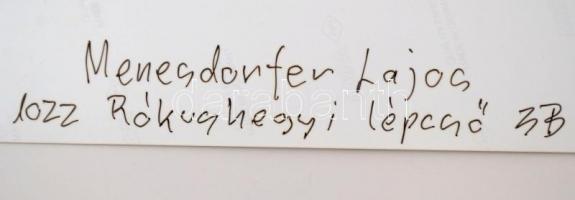 Menesdorfer Lajos
1022 Rókushegyi lépcső 3B
darabanth